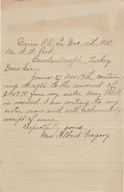 Dec. 11th, 1915.
Mr. W. W. Peet,
Constantinople, Turkey
Dear Sir:
Yours of Nov 19th contain-
ing draft to the amount of
from my sister Mary
is received. I am writing to my
sister now and with acknow
receipt of same.
Respectfully yours,
Mrs Albert Gregory